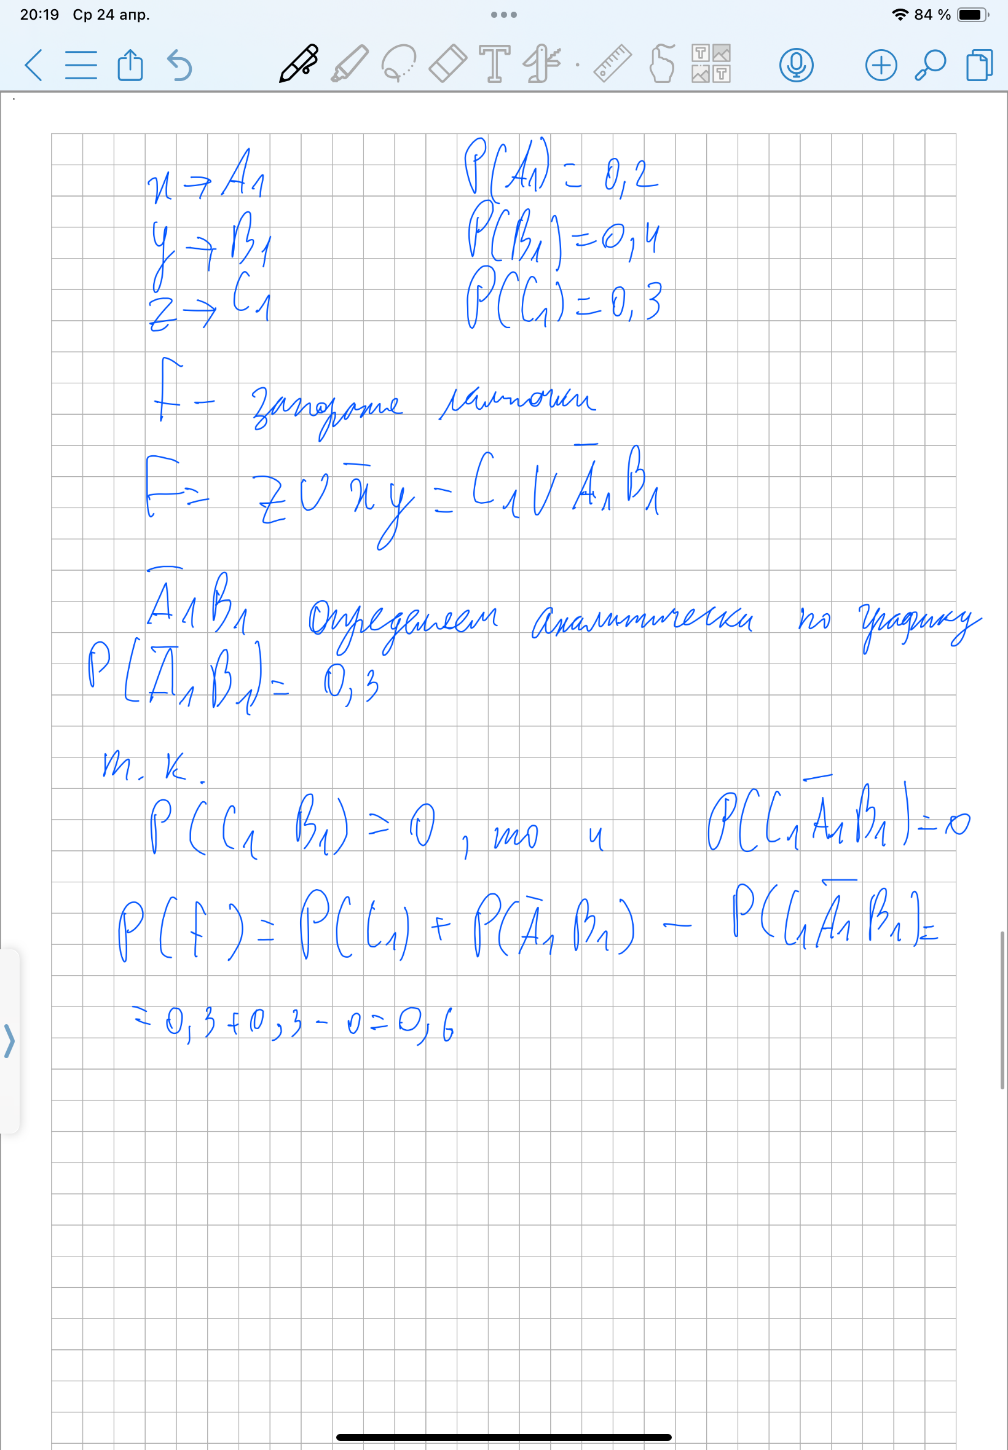 20:19 Ср 24 апр.
84 %
x → A1 P(A1) = 0,2
y → B1 P(B1) = 0,4
z → C1 P(C1) = 0,3
F - загорание лампочки
F = z ∪ x̅ y = C1 ∪ A̅1 B1
A̅1 B1 определяем аналитически по графику
P(A̅1 B1) = 0,3
т. к.
P(C1 B1) = 0, то и P(C1 A̅1 B1) = 0
P(F) = P(C1) + P(A̅1 B1) - P(C1 A̅1 B1) =
= 0,3 + 0,3 - 0 = 0,6